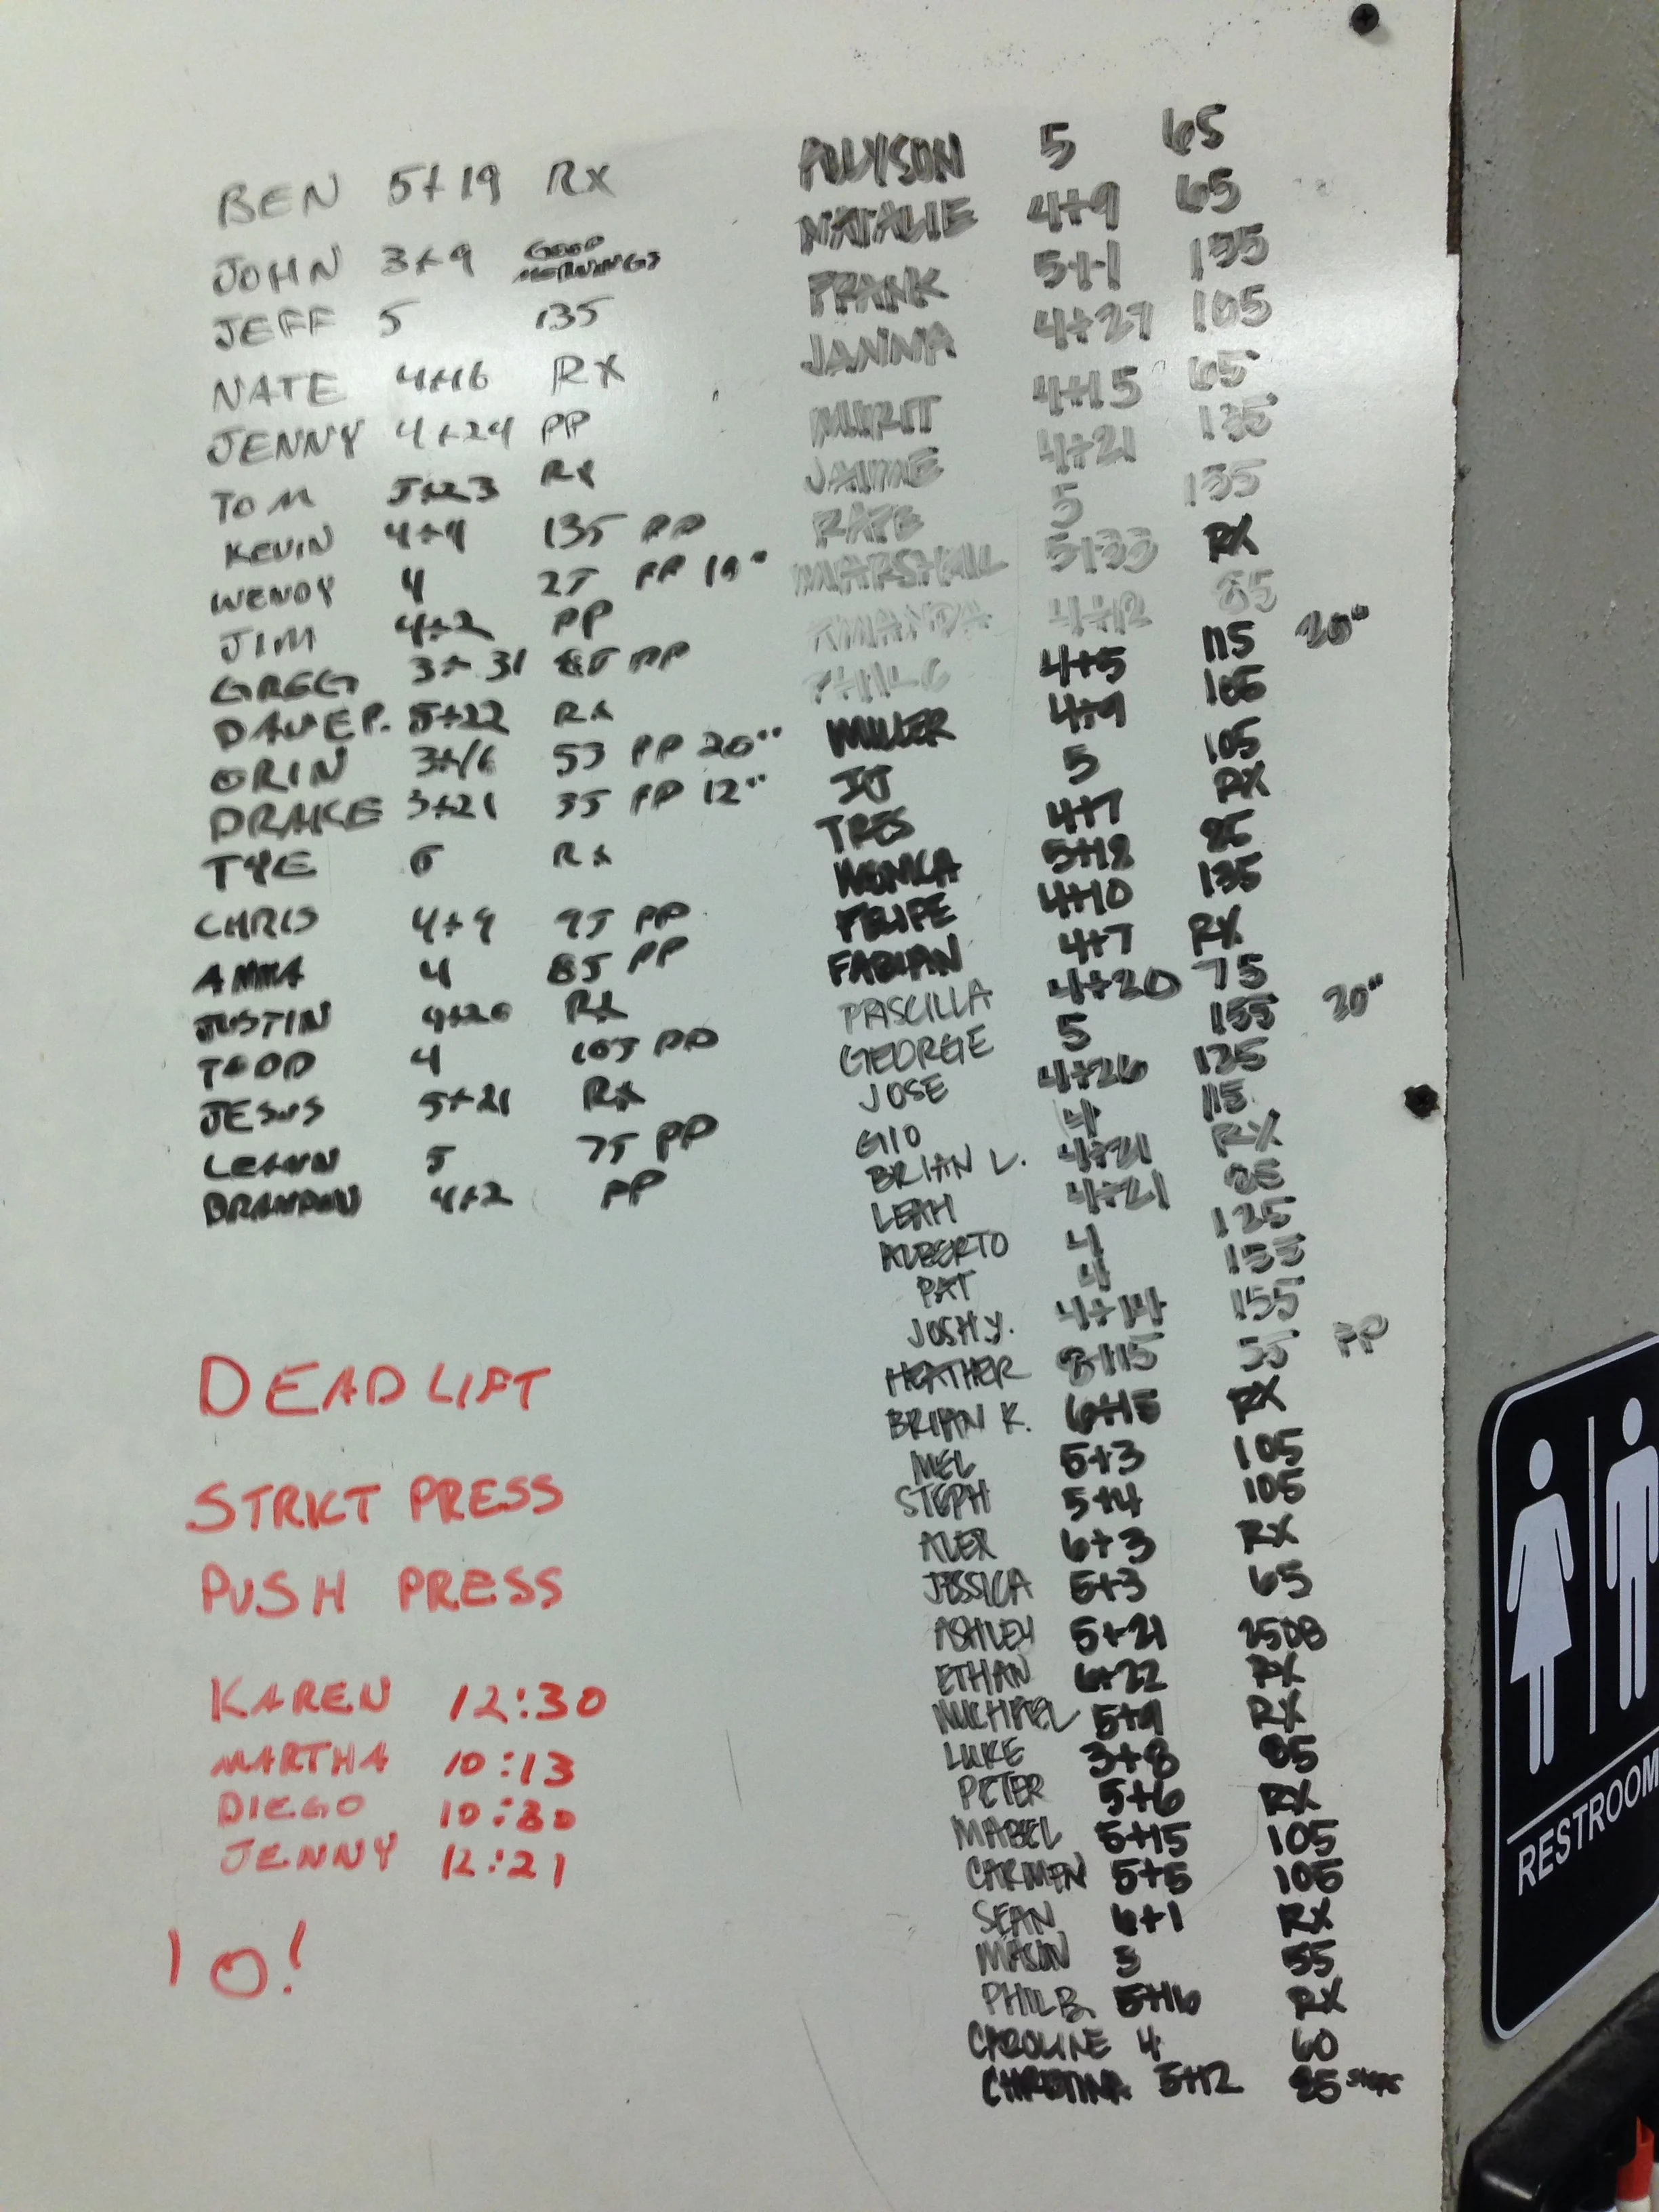 BEN 5+19 RX
JOHN 3+9 GOOD MORNINGS
JEFF 5 135
NATE 4+16 RX
JENNY 4+24 PP
TOM 5+23 RX
KEVIN 4+4 135 PP
WENDY 4 25 PP
JIM 4+2 PP
GREG 3+31 PP
DAVE P. 5+22 RX
ORIN 3+16 53 PP 20"
DRAKE 3+21 35 PP 12"
TYE RX
CHRIS 4+9 95 PP
ANNA 4 85 PP
JUSTIN 4+20 RX
TODD 4 105 PP
JESUS 5+21 RX
LEANN 5 75 PP
BRANDON 4+2 PP
DEADLIFT
STRICT PRESS
PUSH PRESS
KAREN 12:30
MARTHA 10:13
DIEGO 10:30
JENNY 12:21
10!
ALLYSON 5 65
NATALIE 4+9 65
FRANK 5+1 135
JANNA 4+27 105
4+15 65
JAIME 4+21 135
RAFE 5 135
MARSHALL 5+33 RX
AMANDA 4+12 85
PHIL C 4+5 115 20"
MILLER 4+9 105
JJ 5 105
TRES 4+7 RX
MONICA 5+18 85
FELIPE 4+10 135
FABIAN 4+7 RX
PRISCILLA 4+20 75
GEORGE 5 155 20"
JOSE 4+26 125
GIO 4 115
BRIAN L. 4+21 RX
LEAH 4+21 85
ALBERTO 4 125
PAT 4 155
JOSH Y. 4+14 155
HEATHER 55 PP
BRIAN K. 6+15 RX
MEL 5+3 105
STEPH 5+4 105
ALEX 6+3 RX
JESSICA 5+3 65
ASHLEY 5+21 25DB
ETHAN 6+22 RX
MICHAEL 5+9 RX
LUKE 3+8 85
PETER 5+6 RX
MABEL 5+15 105
CARMEN 5+5 105
SEAN 6+1 RX
MASON 3 55
PHIL B. 5+16 RX
CAROLINE 4 60
CHRISTINA 5+12 85 STEPS
RESTROOM